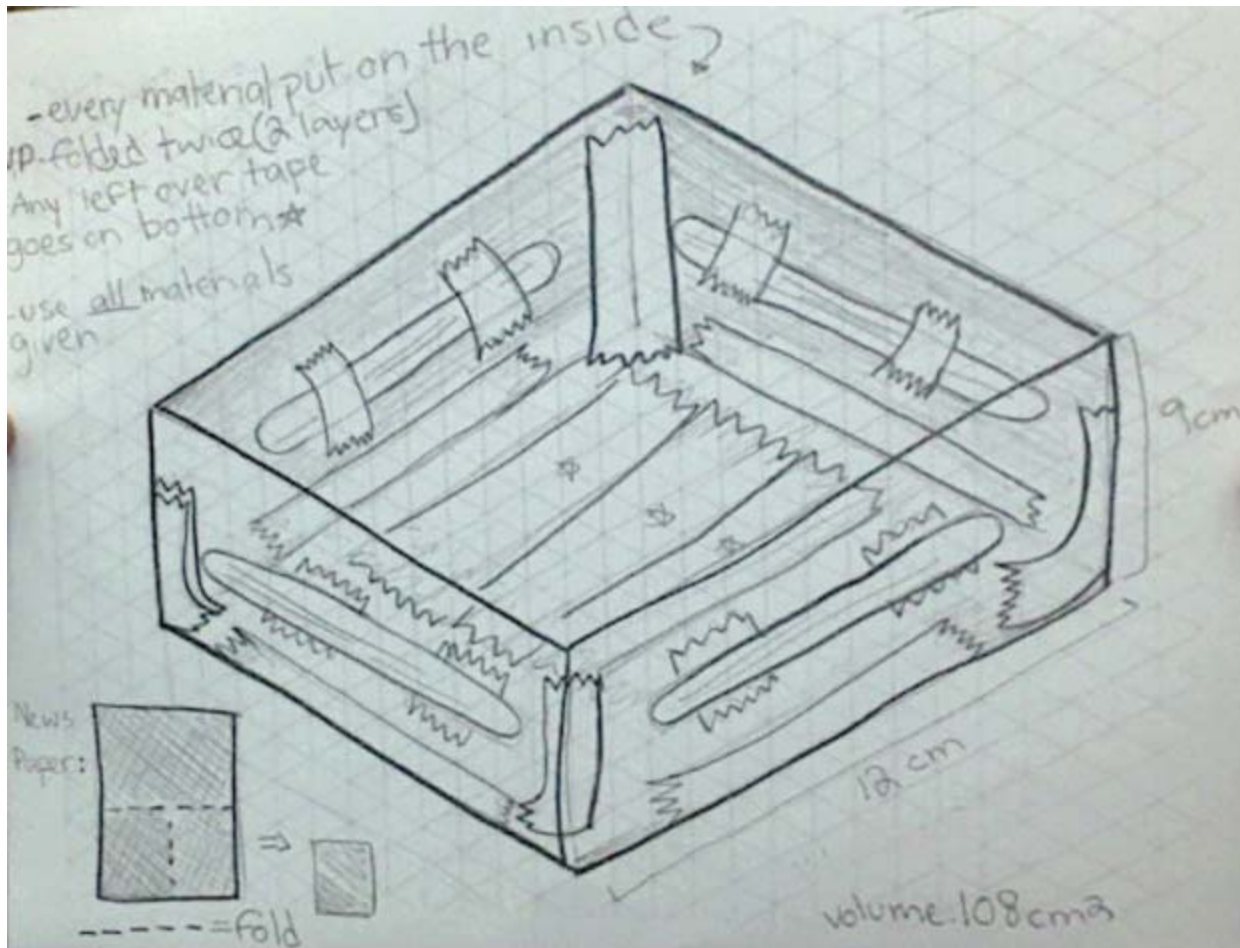 -every material put on the inside
np-folded twice (2 layers)
Any left over tape
goes on bottom☆
-use all materials
given
9cm
12 cm
News
Paper:
-----=fold
volume.108cm3